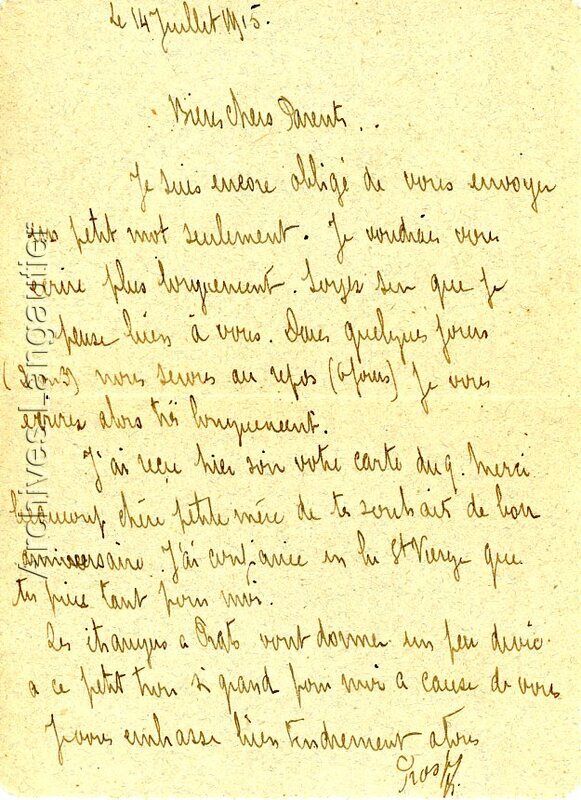 Le 14 Juillet 1915.
Biens chers Parents..
Je suis encore obligé de vous envoyer
un petit mot seulement. Je voudrais vous
écrire plus longuement. Soyez sûr que je
pense bien à vous. Dans quelques jours
(2 ou 3) nous serons au repos (6 jours) Je vous
écrirai alors très longuement.
J'ai reçu hier soir votre carte du 9. Merci
beaucoup, chère petite mère de tes souhaits de bon
anniversaire. J'ai confiance en la Ste Vierge que
tu pries tant pour moi.
Les étrangers a Prats vont donner un peu de vie
a ce petit trou si grand pour moi a cause de vous
Je vous embrasse bien tendrement a tous
Prosp
Archives Langautier